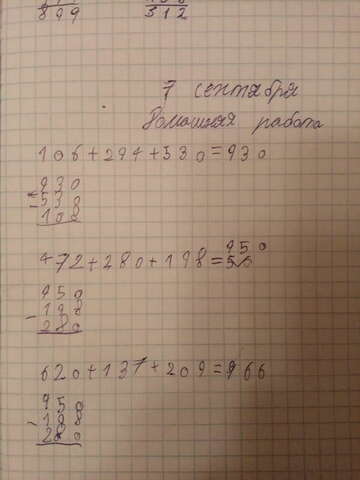 899
312
7 сентября
Домашняя работа
106+294+530=930
930
- 530
100
950
472+280+198=
950
- 198
280
620+137+209=966
950
- 198
280